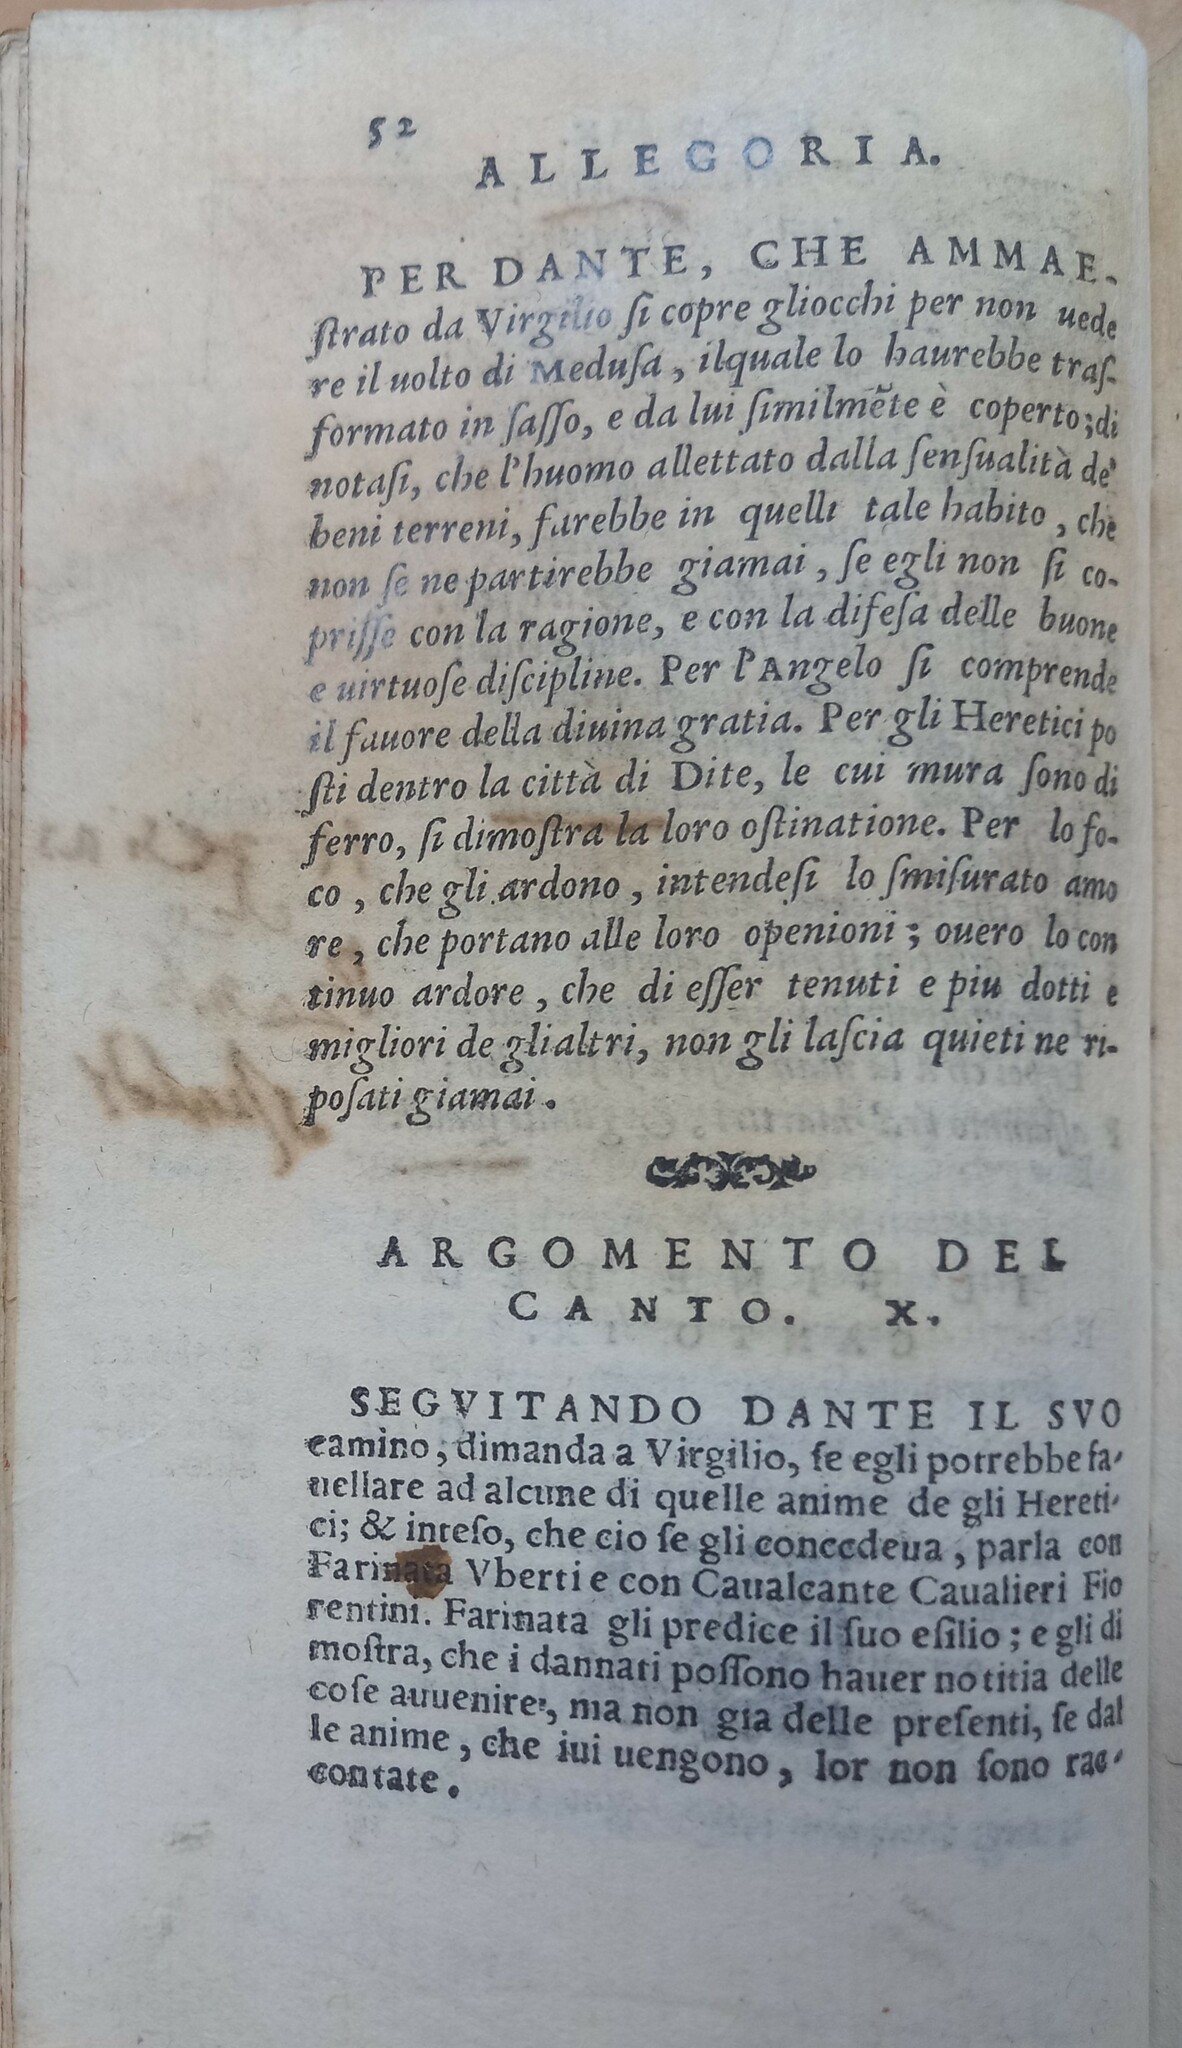 52
ALLEGORIA.
PER DANTE, CHE AMMAE-
ſtrato da Virgilio ſi copre gliocchi per non uede
re il uolto di Meduſa, ilquale lo haurebbe traſ-
formato in ſaſſo, e da lui ſimilmẽte è coperto; di
notaſi, che l'huomo allettato dalla ſenſualità de'
beni terreni, farebbe in quelli tale habito, che
non ſe ne partirebbe giamai, ſe egli non ſi co-
priſſe con la ragione, e con la difeſa delle buone
e uirtuoſe diſcipline. Per l'Angelo ſi comprende
il fauore della diuina gratia. Per gli Heretici po
ſti dentro la città di Dite, le cui mura ſono di
ferro, ſi dimoſtra la loro oſtinatione. Per lo fo-
co, che gli ardono, intendeſi lo ſmiſurato amo
re, che portano alle loro openioni; ouero lo con
tinuo ardore, che di eſſer tenuti e piu dotti e
migliori de glialtri, non gli laſcia quieti ne ri-
poſati giamai.
ARGOMENTO DEL
CANTO. X.
SEGVITANDO DANTE IL SVO
camino, dimanda a Virgilio, ſe egli potrebbe fa-
uellare ad alcune di quelle anime de gli Hereti-
ci; & inteſo, che cio ſe gli concedeua, parla con
Farinata Vberti e con Caualcante Caualieri Fio
rentini. Farinata gli predice il ſuo eſilio; e gli di
moſtra, che i dannati poſſono hauer notitia delle
coſe auuenire, ma non gia delle preſenti, ſe dal
le anime, che iui uengono, lor non ſono rac-
contate.